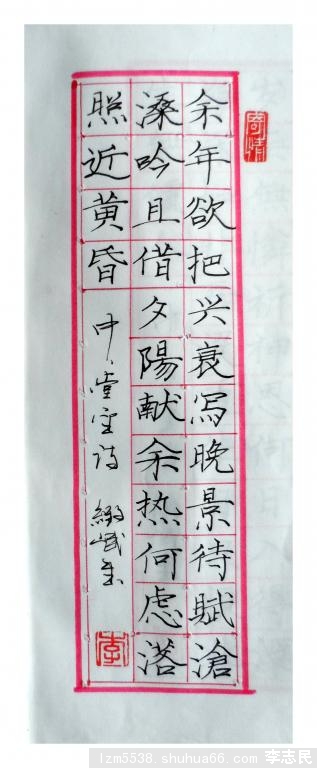 余年欲把兴衰写晚景待賦滄
溱吟且借夕陽献余热何虑落
照近黄昏
中堂室诗
寄情
李
lzm5538.shuhua66.com 李志民